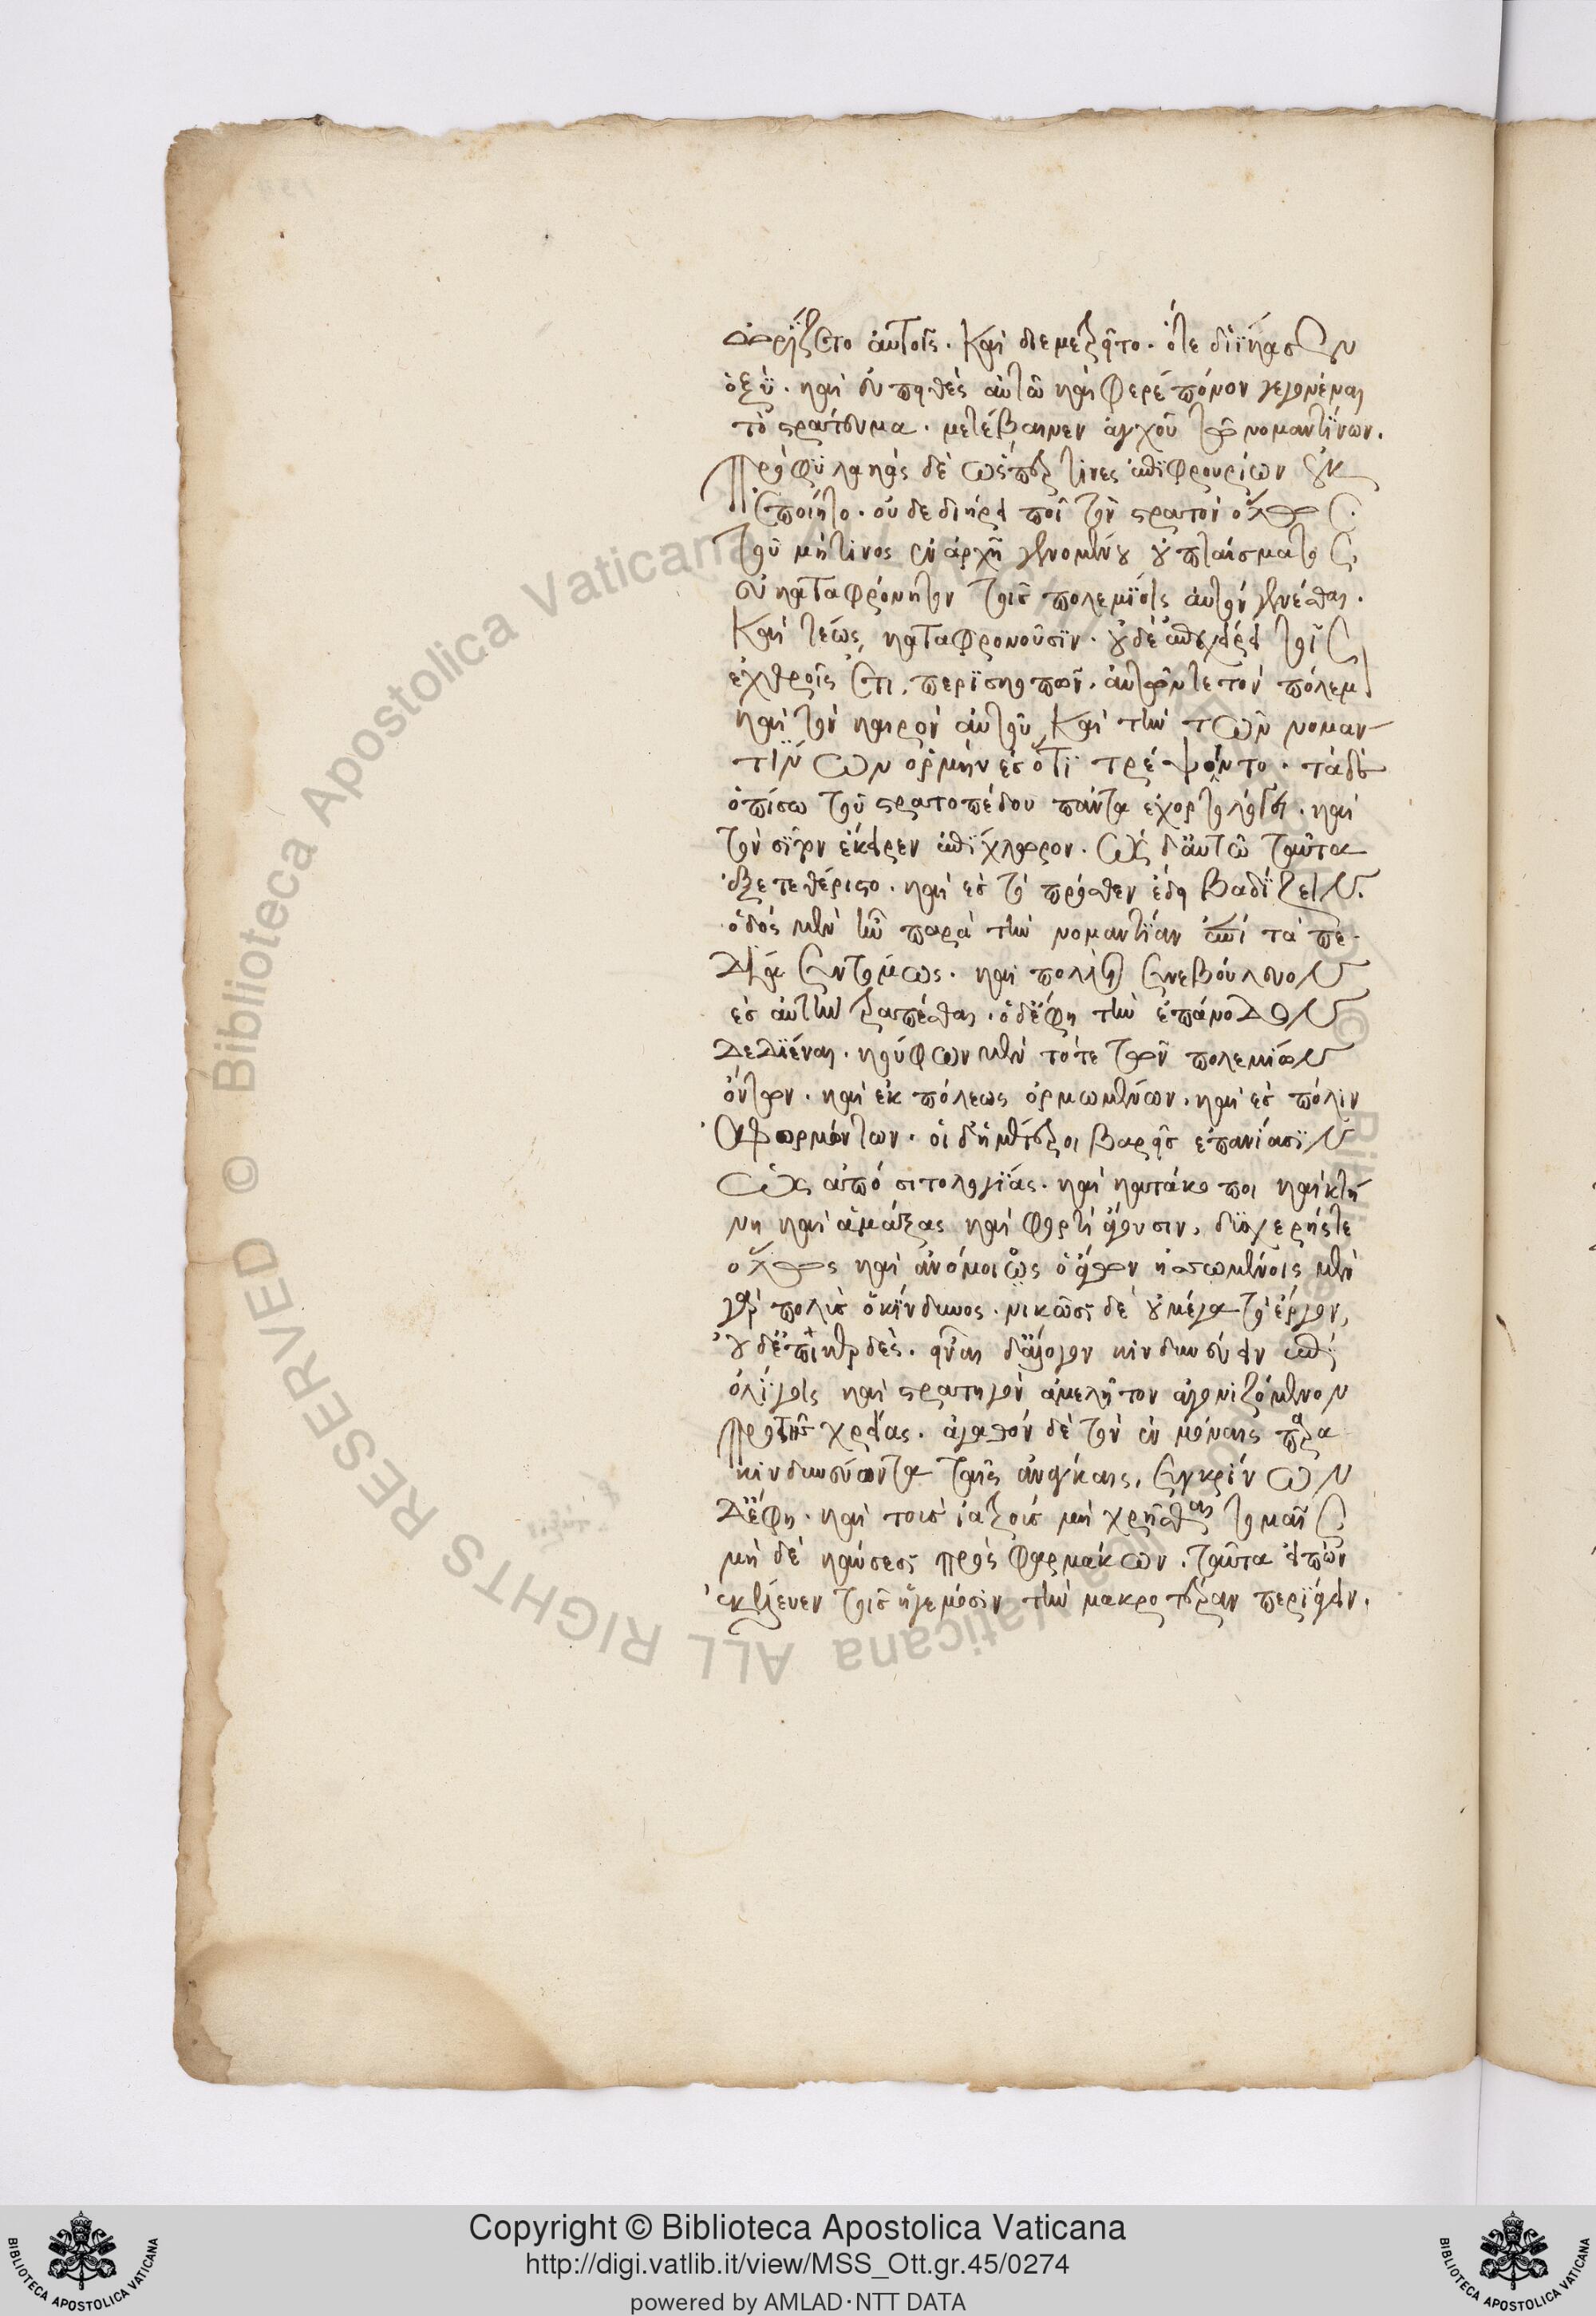 ὥριστο αὐτοῖς. καὶ διεμετρεῖτο. ὅτε δ' εἴκασεν
ὀξὺ. καὶ εὐπειθὲς αὐτῶ καὶ φερέπονον γεγονέναι
τὸ στράτευμα. μετέβαινεν ἀγχοῦ τῶν νομαντίνων.
προφϋλακὰς δὲ ὥσπερ τινες ἐπὶ φρουρίων οὐκ
ἐποιεῖτο. οὐδὲ διήρει ποῖ τὸν στρατὸν ὅλως.
τοῦ μή τινος ἐν ἀρχῇ γενομένου πταίσματος
εὐκαταφρόνητον τοῖς πολεμίοις αὐτὸν γενέσθαι.
καὶ τέως καταφρονοῦσϊν. οὐδὲ ἐπεχείρει τοῖς
ἐχθροῖς ἔτι, περϊσκοπῶν. αὐτόν τε τὸν πόλεμον
καὶ τὸν καιρὸν αὐτοῦ, καὶ τὴν τῶν νομαν
τίνων ὁρμὴν ἐς ὅτϊ τρέψοιντο. τὰ δὲ
ὀπίσω τοῦ στρατοπέδου πάντα ἐχορτολόγει. καὶ
τὸν σῖτον ἔκειρεν ἔτι χλωρον. ὡς δ' αὐτῶ ταῦτα
ἐξετεθέριστο. καὶ ἐς τὸ πρόσθεν ἔδει βαδίζειν.
ὁδὸς μὲν ἦν παρὰ τὴν νομαντίαν ἐπὶ τὰ πε-
δία συντόμως. καὶ πολλοὶ συνεβούλευον
ἐς αὐτὴν τραπέσθαι. ὁ δ' ἔφη τὴν ἐπάνοδον
δεδϊέναι. κούφων μὲν τότε τῶν πολεμίων
ὄντων. καὶ ἐκ πόλεως ὁρμωμένων. καὶ ἐς πόλιν
ἀφορμώντων. οἱ δ' ἡμέτεροι βαρεῖς ἐπανίασϊν
ὡς ἀπὸ σιτολογϊάς. καὶ κατάκοποι καὶ κτή
νη καὶ ἁμάξας καὶ φορτί ἄγουσιν. δϋσχερής τε
ὅλως καὶ ἀνόμοιως ὁ ἀγὼν ἡσσωμένοις μὲν
γὰρ πολὺς ὁ κίνδυνος. νικῶσϊ δὲ οὐ μέγα τὸ ἔργον,
οὐδ' ἐπικερδὲς. εἶναι δ' ἄλογον κινδυνεύειν ἐπὶ
ὀλίγοις καὶ στρατηγὸν ἀμελῆ τὸν ἀγωνιζόμενον
πρὸ τῆς χρείας. ἀγαθὸν δὲ τὸν ἐν μόναις παρα
κινδυνεύοντα ταῖς ἀνάγκαις, συγκρίνων
δ' ἔφη. καὶ τοὺς ἰατροὺς μὴ χρῆσθαι τομαῖς
μὴ δὲ καύσεσϊ πρὸς φαρμάκων. ταῦτα εἰπὼν
ἐκέλευεν τοῖς ἡγεμόσϊν τὴν μακροτέραν περιάγειν.
Copyright © Biblioteca Apostolica Vaticana
http://digi.vatlib.it/view/MSS_Ott.gr.45/0274
powered by AMLAD·NTT DATA